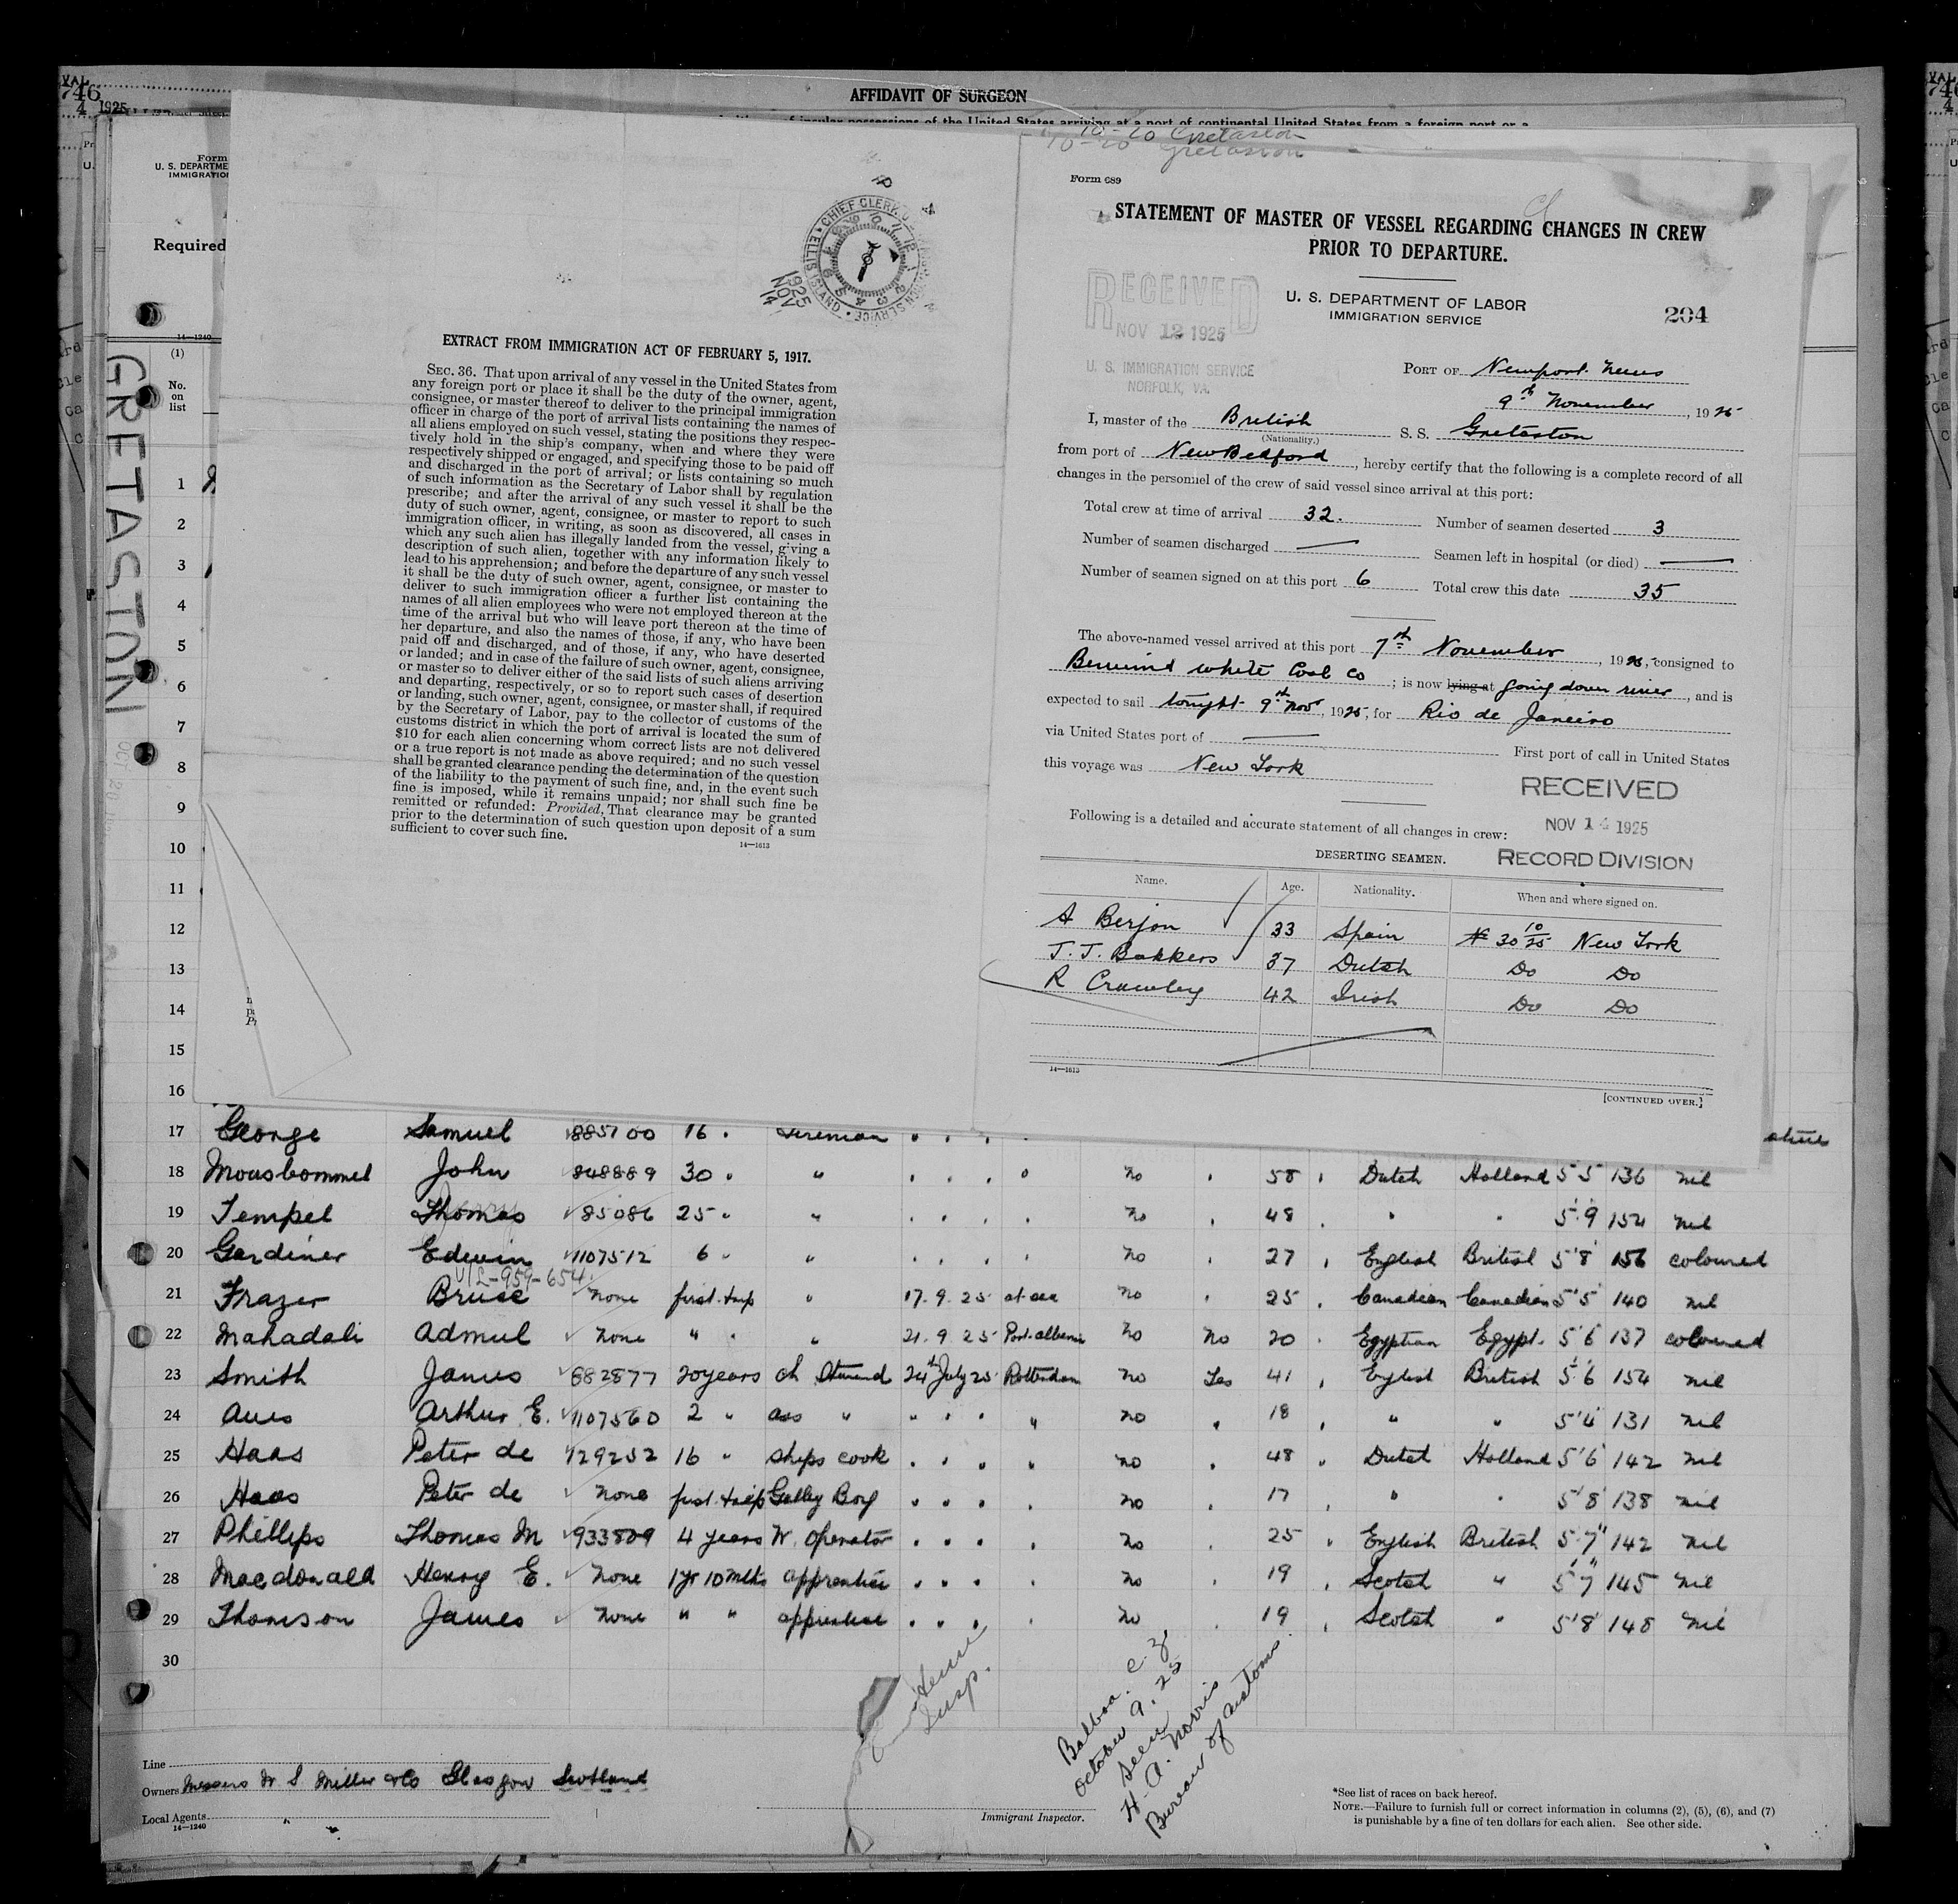 VAL
746
4 1925
AFFIDAVIT OF SURGEON
insular possessions of the United States arriving at a port of continental United States from a foreign port or a
Form
U. S. DEPARTME
IMMIGRATIO
Required
14—1240
(1)
No.
on
list
GRETASTON
CHIEF CLERK
ELLIS ISLAND
1925
NOV
14
EXTRACT FROM IMMIGRATION ACT OF FEBRUARY 5, 1917.
SEC. 36. That upon arrival of any vessel in the United States from
any foreign port or place it shall be the duty of the owner, agent,
consignee, or master thereof to deliver to the principal immigration
officer in charge of the port of arrival lists containing the names of
all aliens employed on such vessel, stating the positions they respec-
tively hold in the ship's company, when and where they were
respectively shipped or engaged, and specifying those to be paid off
and discharged in the port of arrival; or lists containing so much
of such information as the Secretary of Labor shall by regulation
prescribe; and after the arrival of any such vessel it shall be the
duty of such owner, agent, consignee, or master to report to such
immigration officer, in writing, as soon as discovered, all cases in
which any such alien has illegally landed from the vessel, giving a
description of such alien, together with any information likely to
lead to his apprehension; and before the departure of any such vessel
it shall be the duty of such owner, agent, consignee, or master to
deliver to such immigration officer a further list containing the
names of all alien employees who were not employed thereon at the
time of the arrival but who will leave port thereon at the time of
her departure, and also the names of those, if any, who have been
paid off and discharged, and of those, if any, who have deserted
or landed; and in case of the failure of such owner, agent, consignee,
or master so to deliver either of the said lists of such aliens arriving
and departing, respectively, or so to report such cases of desertion
or landing, such owner, agent, consignee, or master shall, if required
by the Secretary of Labor, pay to the collector of customs of the
customs district in which the port of arrival is located the sum of
$10 for each alien concerning whom correct lists are not delivered
or a true report is not made as above required; and no such vessel
shall be granted clearance pending the determination of the question
of the liability to the payment of such fine, and, in the event such
fine is imposed, while it remains unpaid; nor shall such fine be
remitted or refunded: Provided, That clearance may be granted
prior to the determination of such question upon deposit of a sum
sufficient to cover such fine.
14—1613
10-20 Gretaston
10-20 Gretaston
Form 689
STATEMENT OF MASTER OF VESSEL REGARDING CHANGES IN CREW
PRIOR TO DEPARTURE.
U. S. DEPARTMENT OF LABOR
IMMIGRATION SERVICE
204
RECEIVED
NOV 12 1925
U. S. IMMIGRATION SERVICE
NORFOLK, VA.
PORT OF Newport News
9th November, 1925
I, master of the British S. S. Gretaston
(Nationality.)
from port of New Bedford, hereby certify that the following is a complete record of all
changes in the personnel of the crew of said vessel since arrival at this port:
Total crew at time of arrival 32. Number of seamen deserted 3
Number of seamen discharged — Seamen left in hospital (or died) —
Number of seamen signed on at this port 6 Total crew this date 35
The above-named vessel arrived at this port 7th November, 1925, consigned to
Berwind White Coal Co; is now lying at going down river, and is
expected to sail tonight 9th Nov, 1925, for Rio de Janeiro
via United States port of — First port of call in United States
this voyage was New York
RECEIVED
NOV 14 1925
RECORD DIVISION
Following is a detailed and accurate statement of all changes in crew:
DESERTING SEAMEN.
Name. Age. Nationality. When and where signed on.
A Berjon 33 Spain 30 10/25 New York
J. J. Bakkers 37 Dutch Do Do
R Crawley 42 Irish Do Do
14—1613
[CONTINUED OVER.]
1
2
3
4
5
6
7
8
9
10
11
12
13
14
15
16
17 George Samuel 885700 16 " Fireman
18 Mousbommel John 848889 30 " " no " 58 " Dutch Holland 5'5 136 nil
19 Tempel Thomas 85086 25 " " no " 48 " " " 5'9 154 nil
20 Gardiner Edwin 1107512 6 " " no " 27 " English British 5'8 156 coloured
V/L-959-654
21 Frazer Bruce none first trip " 17.9.25 at sea no " 25 " Canadian Canadian 5'5 140 nil
22 Mahadali Admul none " " " 21.9.25 Port Alberni no no 20 " Egyptian Egypt. 5'6 137 coloured
23 Smith James 882877 20 years ch Steward 24th July 25 Rotterdam no Yes 41 " English British 5'6 154 nil
24 Aves Arthur E. 1107560 2 " ass " " " " " no " 18 " " " 5'4 131 nil
25 Haas Peter de 129252 16 " Ships cook " " " " no " 48 " Dutch Holland 5'6 142 nil
26 Haas Peter de none first trip Galley Boy " " " " no " 17 " " " 5'8 138 nil
27 Phillips Thomas M 933809 4 years W. Operator " " " " no " 25 " English British 5'7" 142 nil
28 Macdonald Henry E. none 1yr 10 mths apprentice " " " " no " 19 " Scotch " 5'7" 145 nil
29 Thomson James none " " apprentice " " " " no " 19 " Scotch " 5'8 148 nil
30
Insp.
Balboa. C. Z.
October 9. 25
Seen
H. A. Norris
Bureau of Customs
Line
Owners Messrs W. S Miller & Co Glasgow Scotland
Local Agents
14—1240
Immigrant Inspector.
*See list of races on back hereof.
NOTE.—Failure to furnish full or correct information in columns (2), (5), (6), and (7)
is punishable by a fine of ten dollars for each alien. See other side.